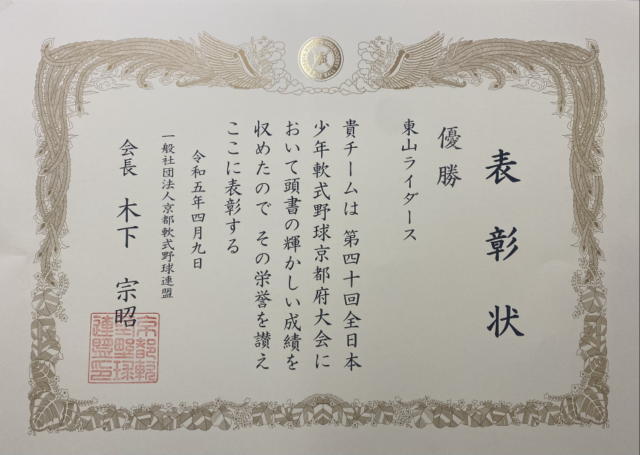 表彰状
優勝
東山ライダース
貴チームは 第四十回全日本
少年軟式野球京都府大会に
おいて頭書の輝かしい成績を
収めたので その栄誉を讃え
ここに表彰する
令和五年四月九日
一般社団法人京都軟式野球連盟
会長 木下 宗昭